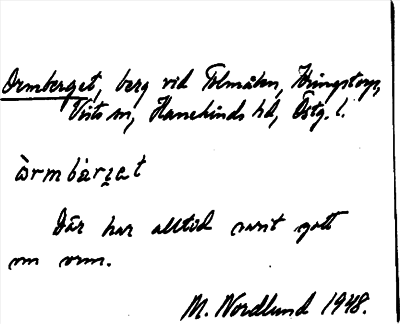 Ormberget, berg vid Tolmåla, Kringstorp,
Vists sn, Hanekinds hd, Östg. l.
òrmbàrʒat
Där har alltid varit gott
om orm.
M. Nordlund 1948.